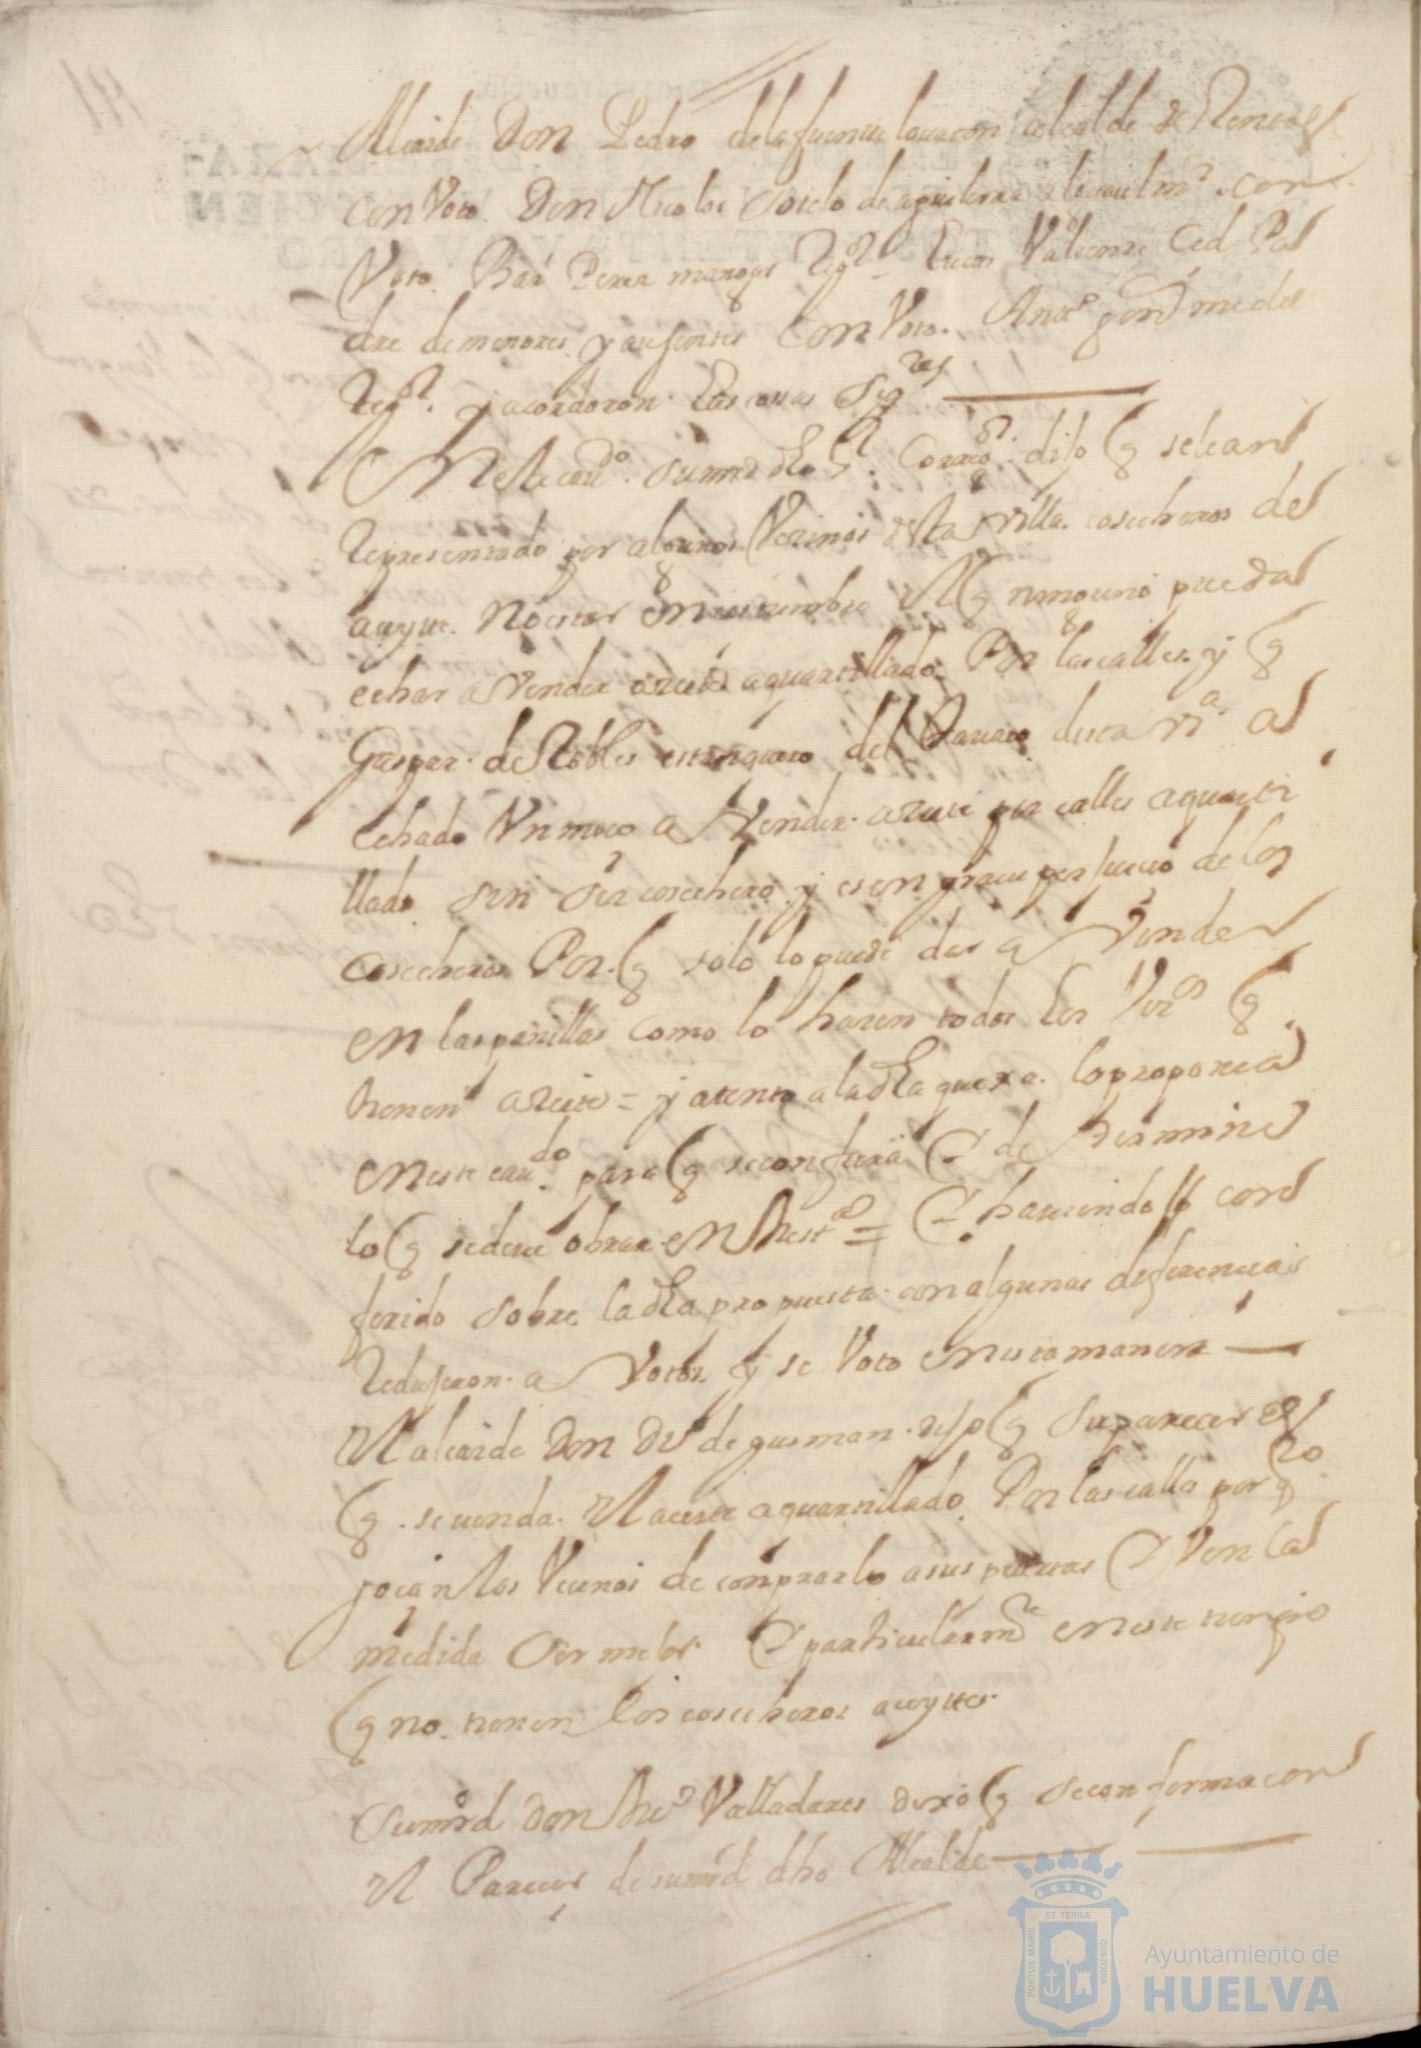 Alcaide Don Pedro de la fuente lauacon alcalde de Rentas
con Voto. Don Nicolas Sotelo de aguilera alguacil mr. con
Voto. Bar Perez manoçes Regor Lucas Valiente Ced Pa
dre de menores y ausentes Con Voto. Anto
Regor. y acordaron las cossas Sigtes
En este cavdo. su mrd dho Sr. Corregor. dijo q se le an
Representado por algunos Vezinos desta villa. cosecheros de
aceyte. No estar En costumbre El q ninguno pueda
echar a vender azeite aquartillado Por las calles. y q
Gaspar. de Robles estanquero del tavaco desta va a
echado Un moço a Vender azeite por calles aquarti
llado sin Ser cosechero y es en grave perjuicio de los
cosecheros Por q solo lo puede dar a Vender
en las panillas como lo hazen todos los Vezos q
tienen azeite = y atento a la dha quexa. lo propone a
en este cavdo. para q se confiera E de termine
lo q se deve obrar En Resta = E haviendo con
ferido Sobre la dha propuesta con algunas diferencias
Redujeron a Votos y se Voto En esta manera
El alcaide Don do de gusman. dijo q Su parecer es
q. se venda. El aceite aquartillado Por las calles por q
gocan los Vecinos de conprarlo a sus puertas E Ven la
medida Ser mejor E particularmte en este tienpo
q no. tienen los cosecheros aceyttes.
Su mrd Don Valladares dixo q Se conforma con
El Parecer de su mrd dho Alcalde
ET TERRA
PORTUS MARIS
CUSTODIA
Ayuntamiento de
HUELVA